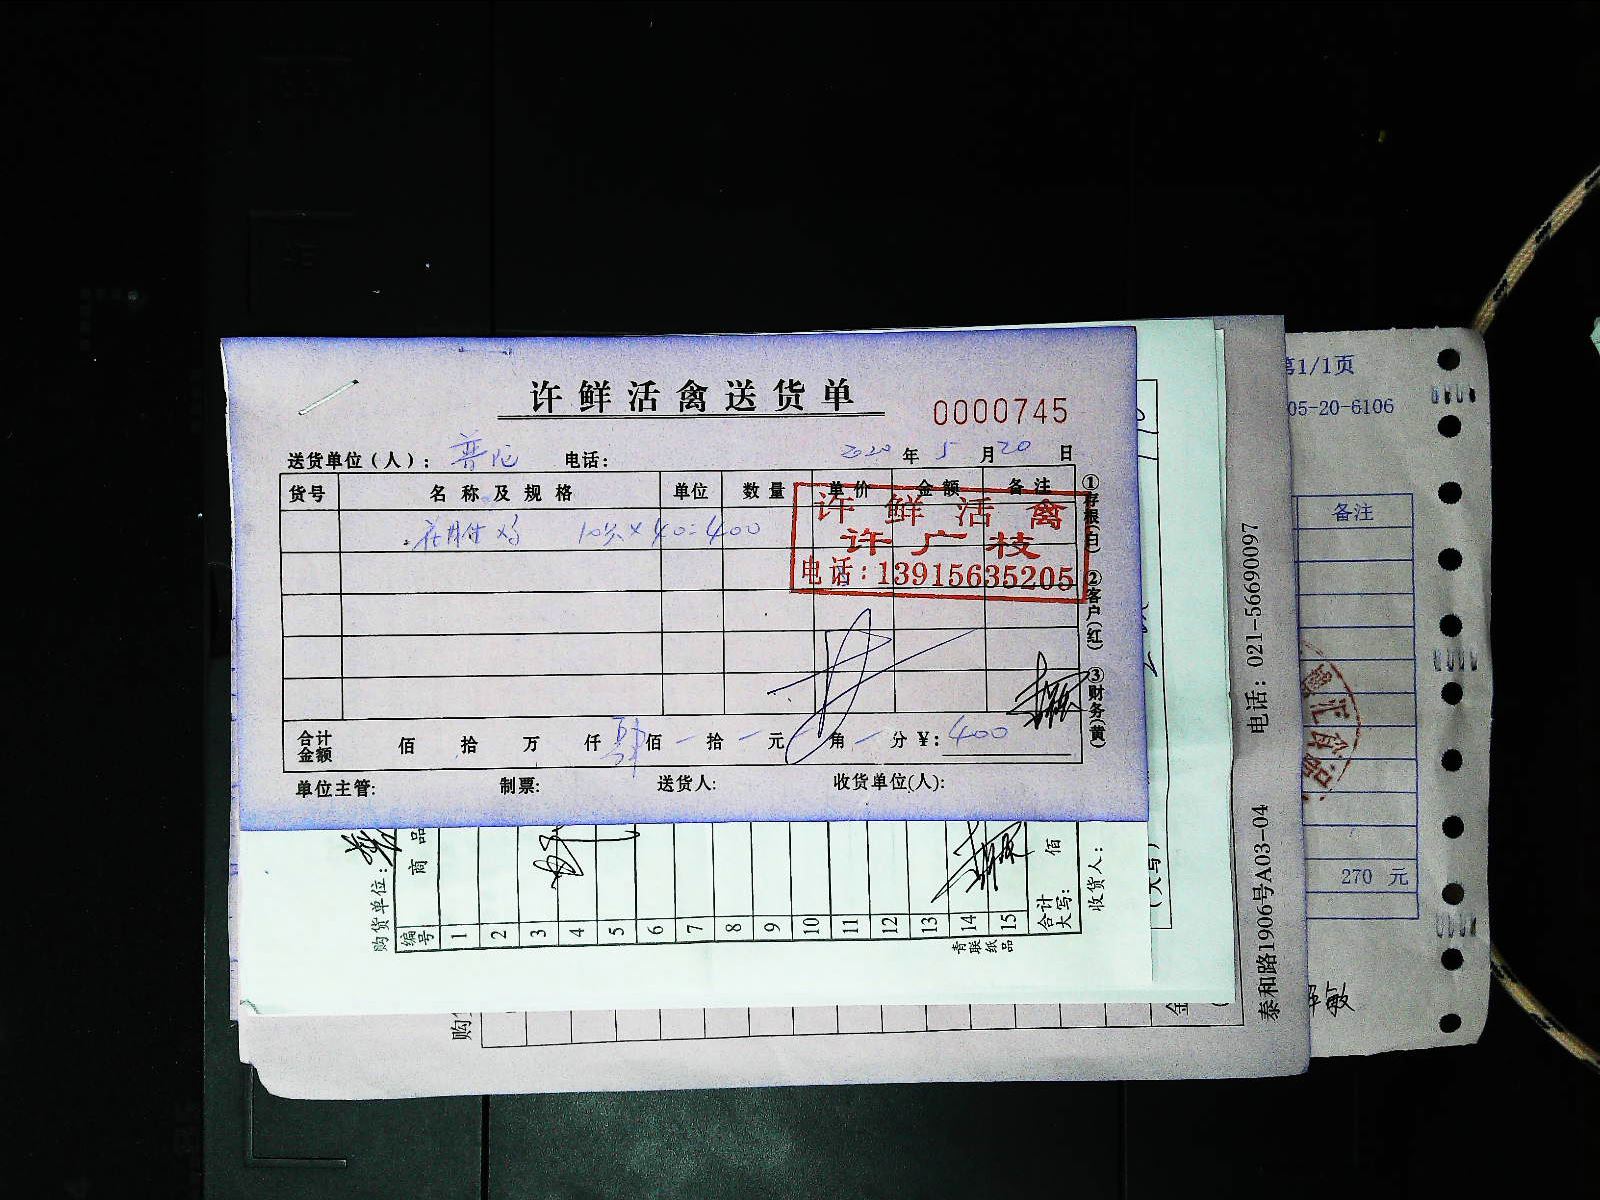 许鲜活禽送货单
0000745
送货单位（人）：普陀 电话： 2020年5月20日
货号 名称及规格 单位 数量 单价 金额 备注
10只×40=400
许鲜活禽
许广枝
电话：13915635205
①存根(白) ②客户(红) ③财务(黄)
合计金额 佰 拾 万 仟 肆佰 一拾 一元 一角 一分 ¥：400
单位主管: 制票: 送货人: 收货单位(人):
购货单位：
编号 商品
1
2
3
4
5
6
7
8
9
10
11
12
13
14
15
合计大写： 佰
收货人：
青联纸品
(大写)
购
金
泰和路1906号A03-04 电话：021-56690097
第1/1页
05-20-6106
备注
270 元
敏